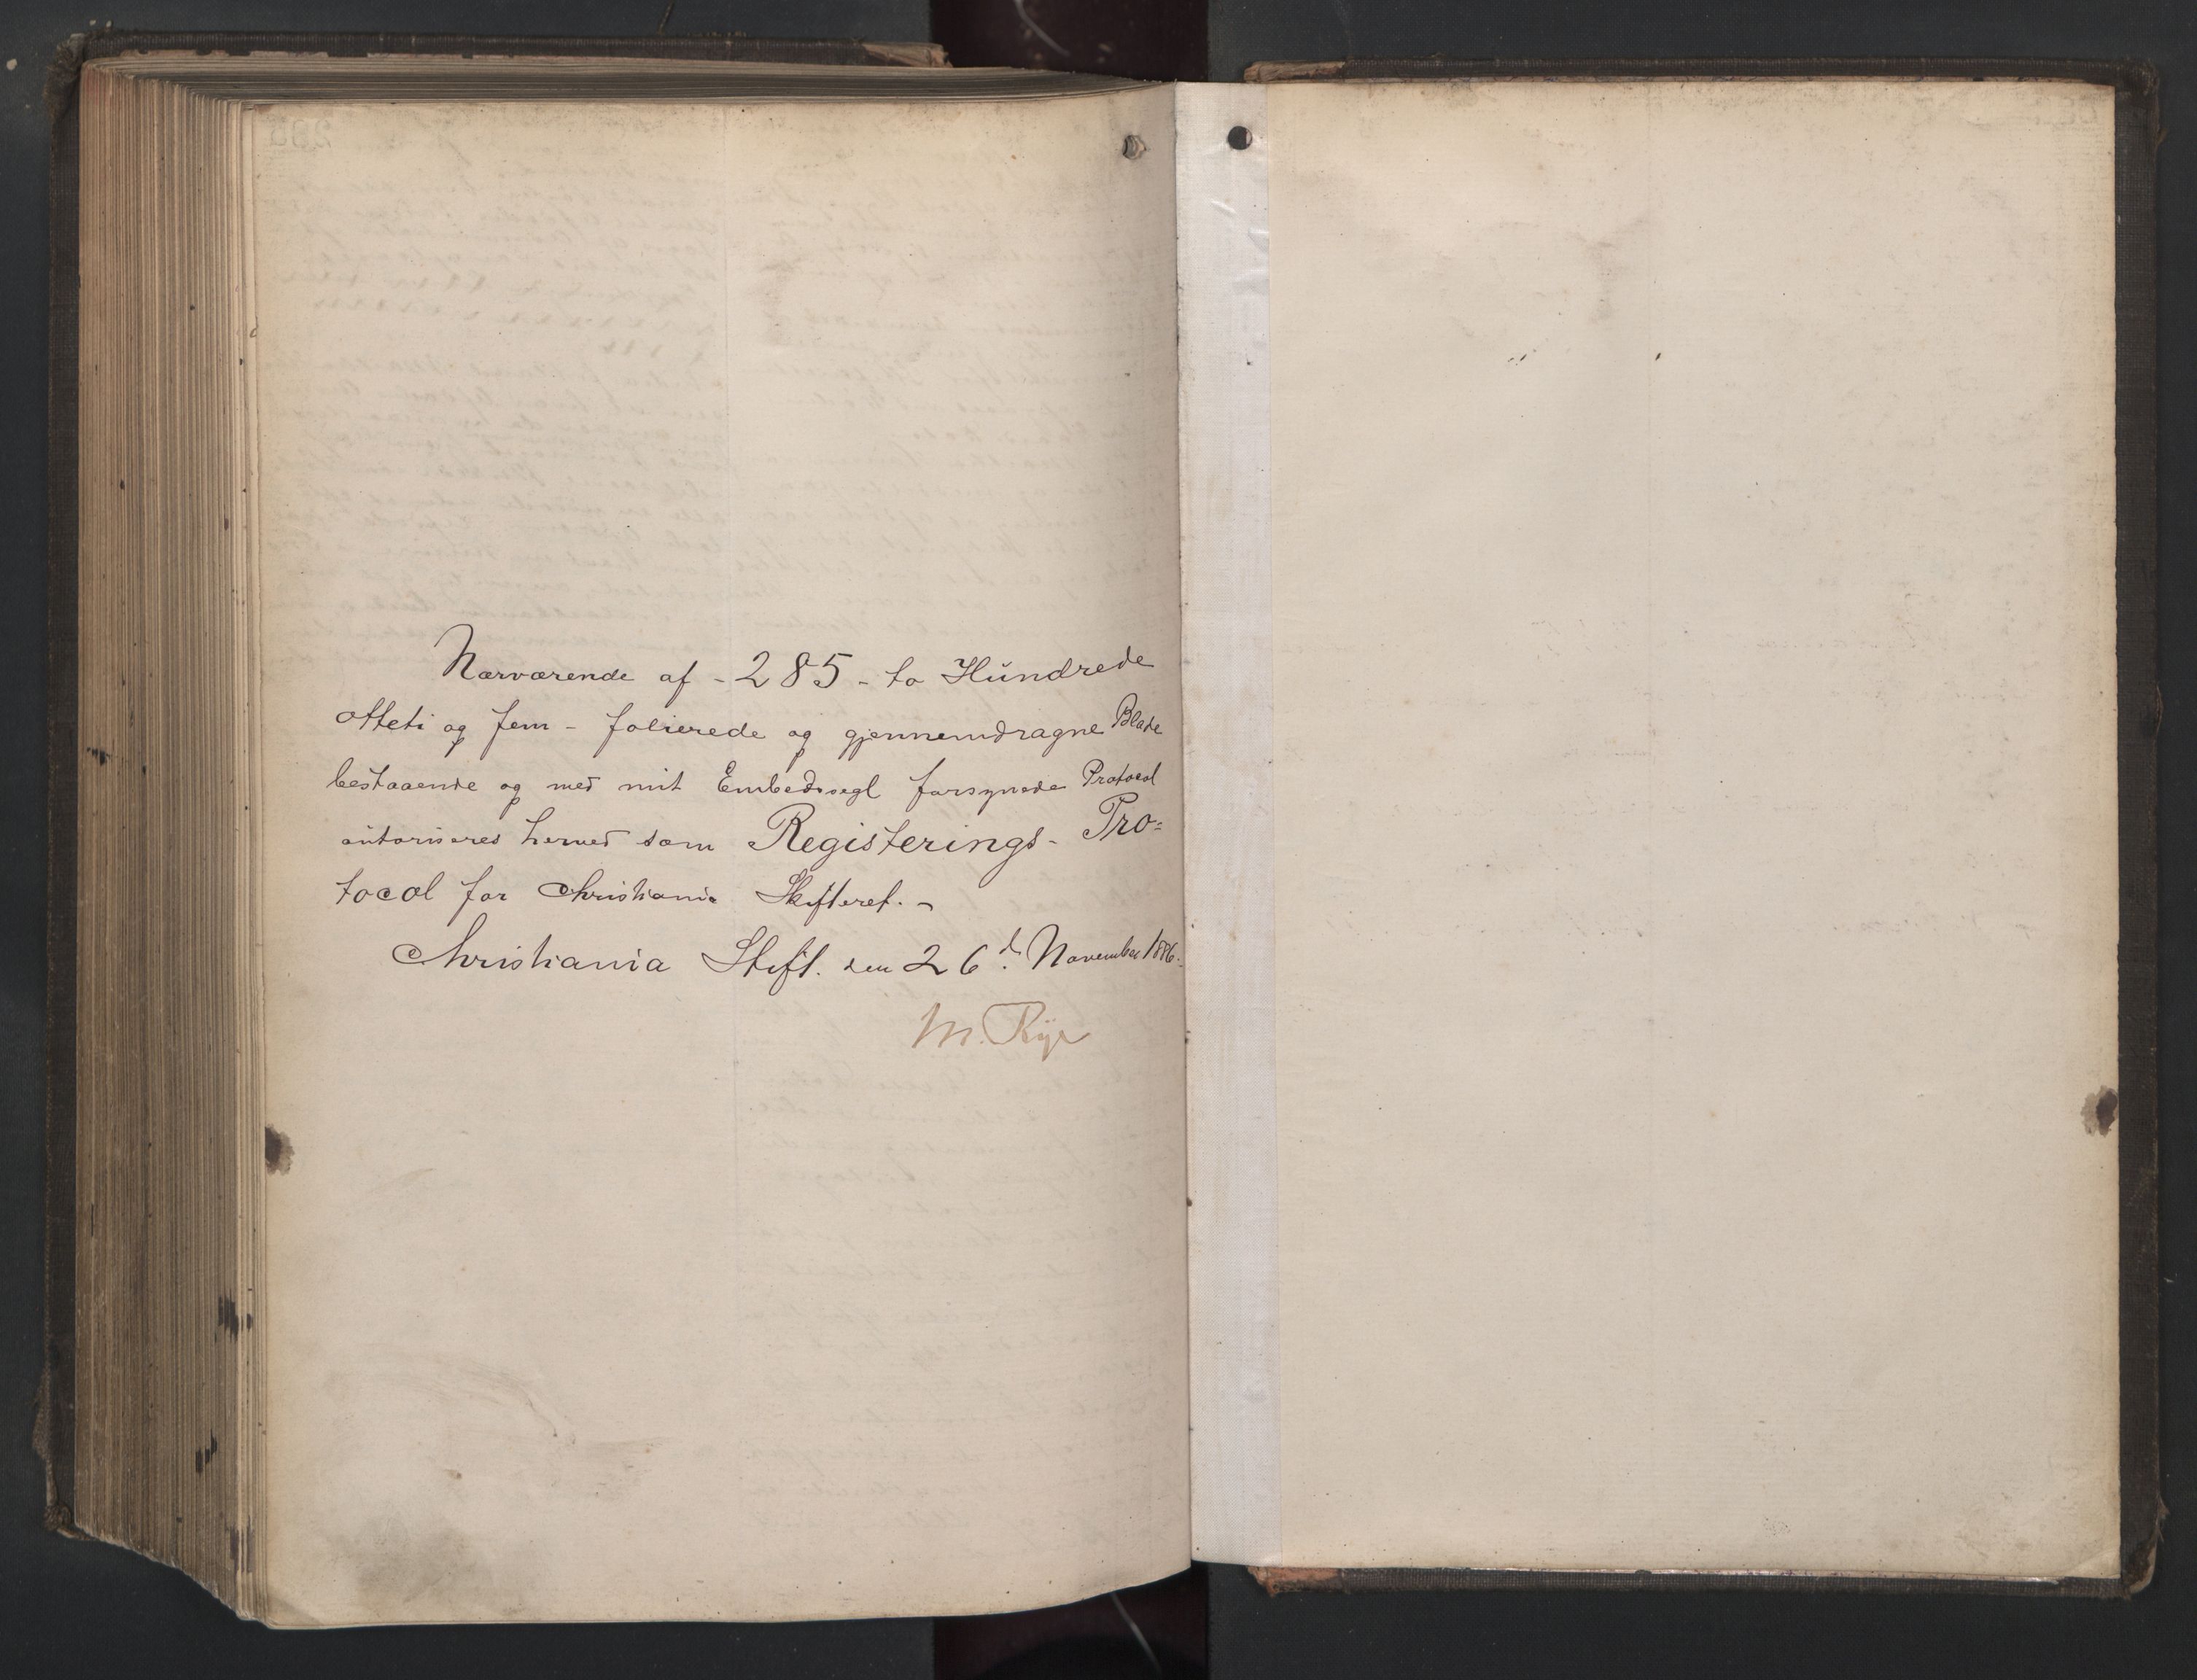 Nærværende af - 285 - to Hundrede
otteti og fem - folierede og gjennemdragne Blade
bestaaende og med mit Embedssegl forsynede Protocol
autoriseres herved som Registerings- Pro=
tocol for Christiania Skifteret. -
Christiania Skift. den 26d. November 1886.
M. Rye